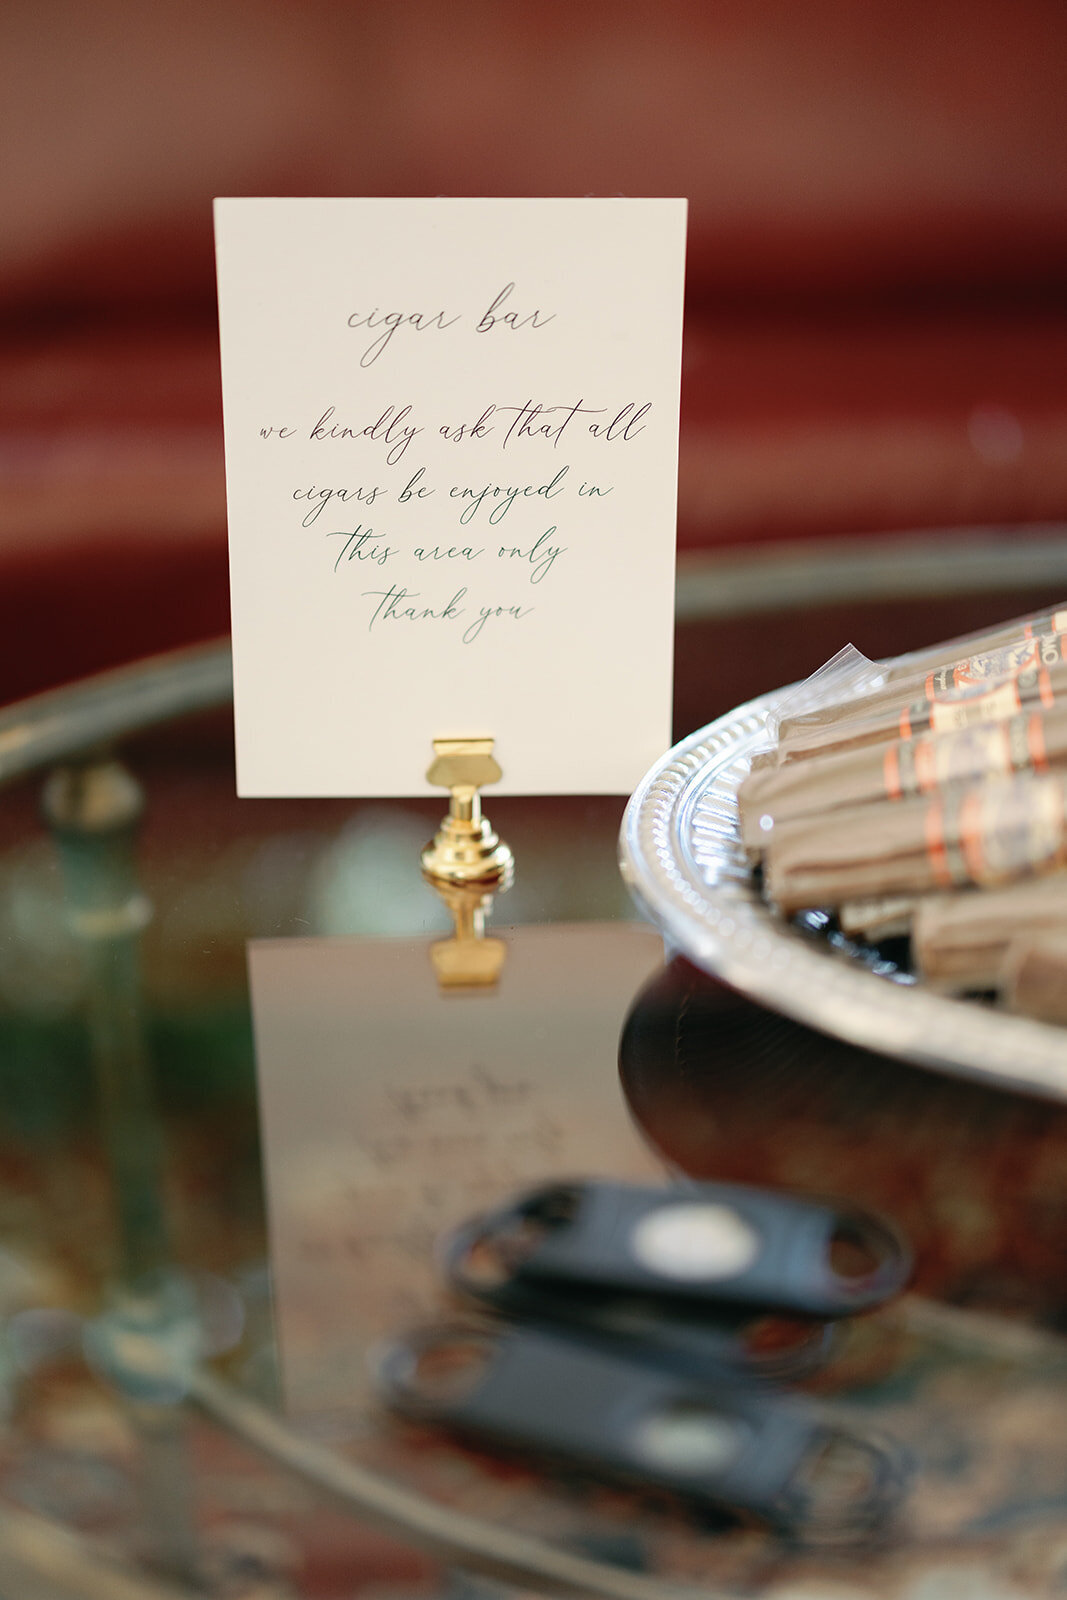 cigar bar
we kindly ask that all
cigars be enjoyed in
this area only
thank you